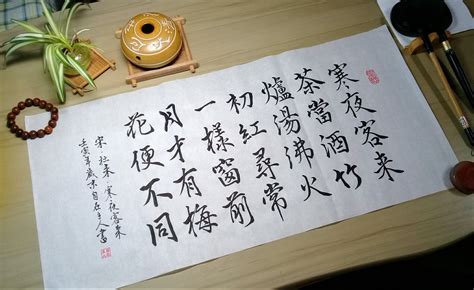 寒夜客来
茶當酒竹
爐湯沸火
初紅尋常
一樣窗前
月才有梅
花便不同
宋·杜耒·寒夜客來
壬寅年歲末自在主人書